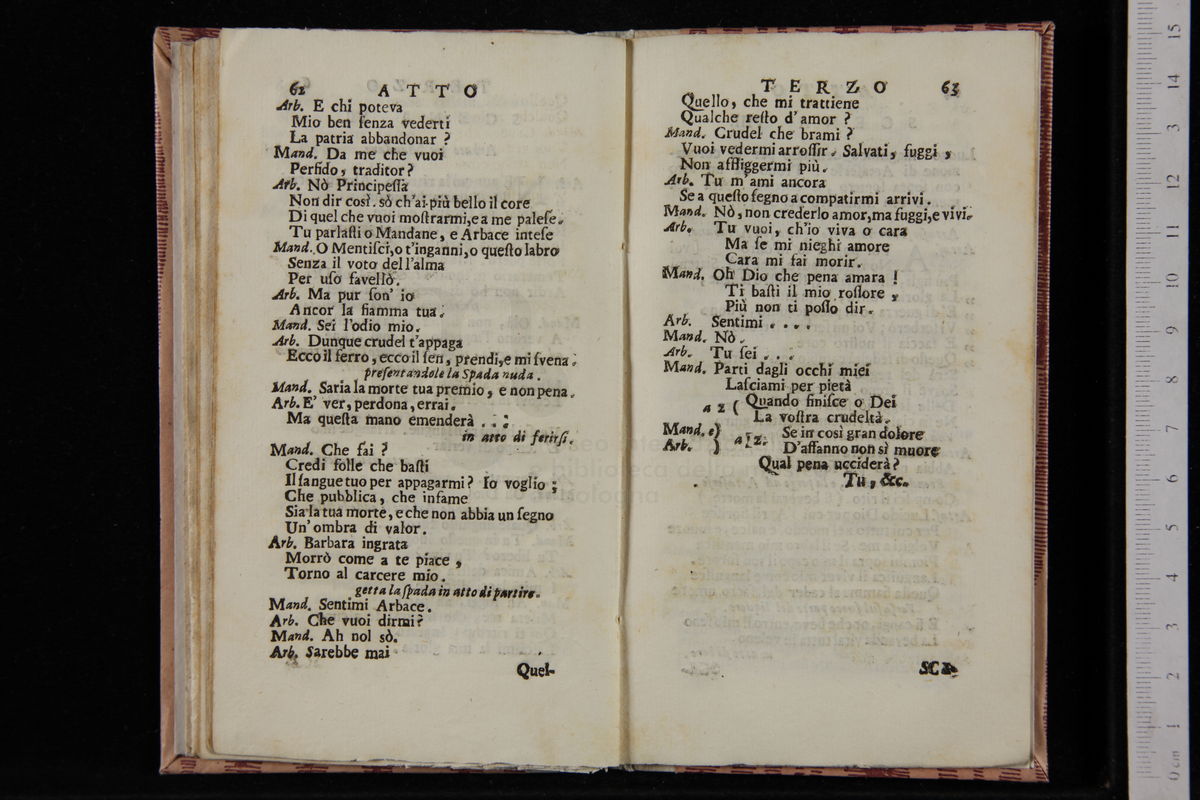 62 ATTO
Arb. E chi poteva
Mio ben ſenza vederti
La patria abbandonar ?
Mand. Da me che vuoi
Perfido, traditor?
Arb. Nò Principeſſa
Non dir così. sò ch'ai più bello il core
Di quel che vuoi moſtrarmi,e a me paleſe.
Tu parlaſti o Mandane, e Arbace inteſe
Mand. O Mentiſci,o t'inganni,o queſto labro
Senza il voto dell'alma
Per uſo favellò.
Arb. Ma pur ſon' io
Ancor la fiamma tua.
Mand. Sei l'odio mio.
Arb. Dunque crudel t'appaga
Ecco il ferro, ecco il ſen, prendi,e mi ſvena.
preſentandole la Spada nuda.
Mand. Saria la morte tua premio, e non pena.
Arb. E' ver, perdona, errai.
Ma queſta mano emenderà . . .
in atto di ferirſi.
Mand. Che fai ?
Credi folle che baſti
Il ſangue tuo per appagarmi? Io voglio ;
Che pubblica, che infame
Sia la tua morte, e che non abbia un ſegno
Un' ombra di valor.
Arb. Barbara ingrata
Morrò come a te piace,
Torno al carcere mio.
getta la ſpada in atto di partire.
Mand. Sentimi Arbace.
Arb. Che vuoi dirmi?
Mand. Ah nol sò.
Arb. Sarebbe mai
Quel-
TERZO 63
Quello, che mi trattiene
Qualche reſto d' amor ?
Mand. Crudel che brami ?
Vuoi vedermi arroſſir. Salvati, fuggi,
Non affliggermi più.
Arb. Tu m'ami ancora
Se a queſto ſegno a compatirmi arrivi.
Mand. Nò, non crederlo amor,ma fuggi,e vivi.
Arb. Tu vuoi, ch'io viva o cara
Ma ſe mi nieghi amore
Cara mi fai morir.
Mand. Oh Dio che pena amara !
Ti baſti il mio roſſore,
Più non ti poſſo dir.
Arb. Sentimi . . . .
Mand. Nò.
Arb. Tu ſei . . .
Mand. Parti dagli occhi miei
Laſciami per pietà
a 2 ( Quando finiſce o Dei
La voſtra crudeltà.
Mand. e) a 2. Se in così gran dolore
Arb. ) D'affanno non sì muore
Qual pena ucciderà?
Tu, &c.
SCE-